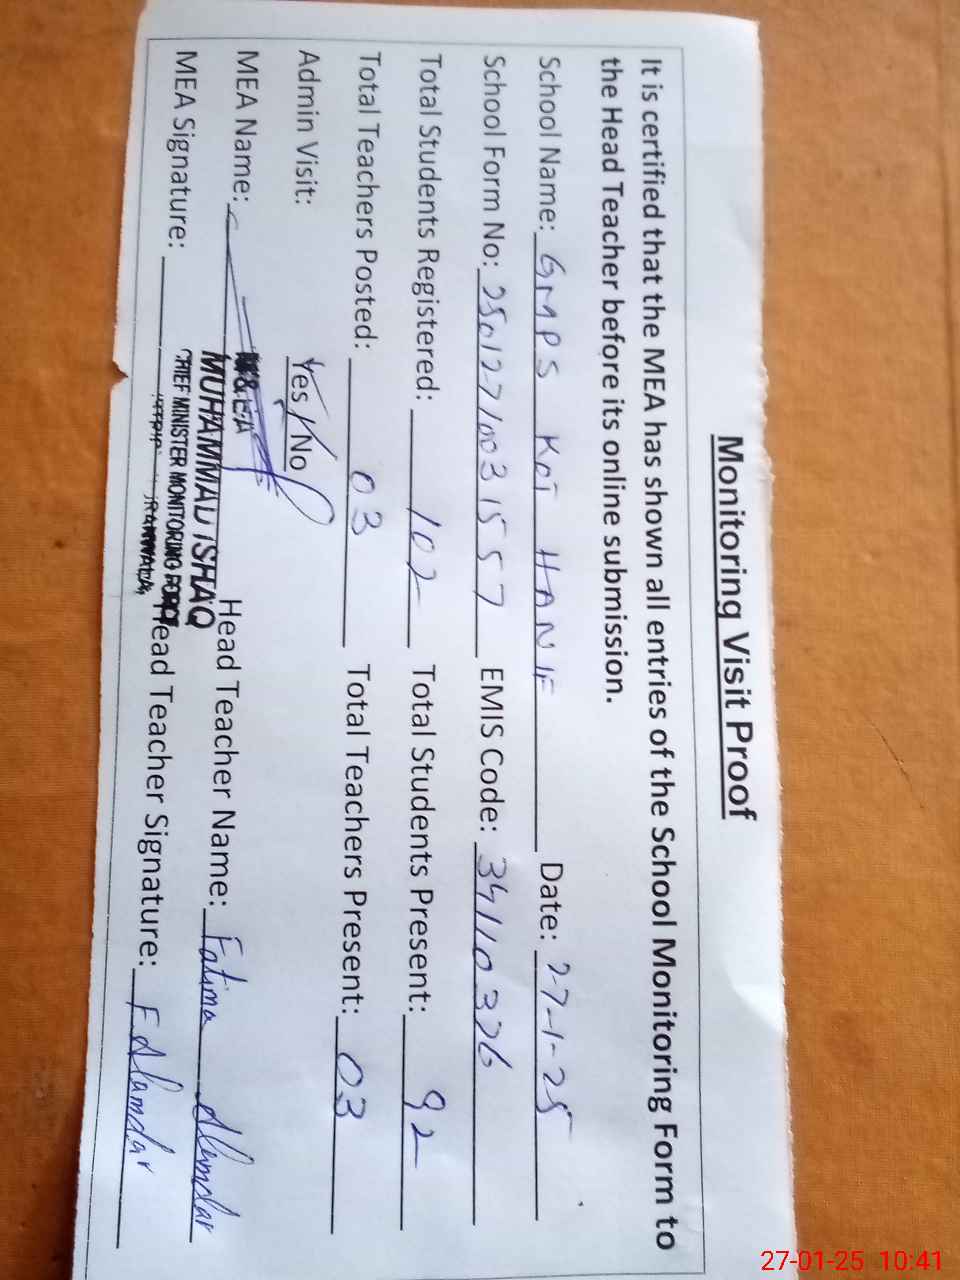 Monitoring Visit Proof
It is certified that the MEA has shown all entries of the School Monitoring Form to
the Head Teacher before its online submission.
School Name: GMPS KOT HANIF Date: 27-1-25
School Form No: 250127710031557 EMIS Code: 34110326
Total Students Registered: 102 Total Students Present: 92
Total Teachers Posted: 03 Total Teachers Present: 03
Admin Visit: Yes / No
MEA Name: M&EA
MUHAMMAD ISHAQ Head Teacher Name: Fatima Alamdar
MEA Signature: CHIEF MINISTER MONITORING FORCE Head Teacher Signature: F Alamdar
27-01-25 10:41